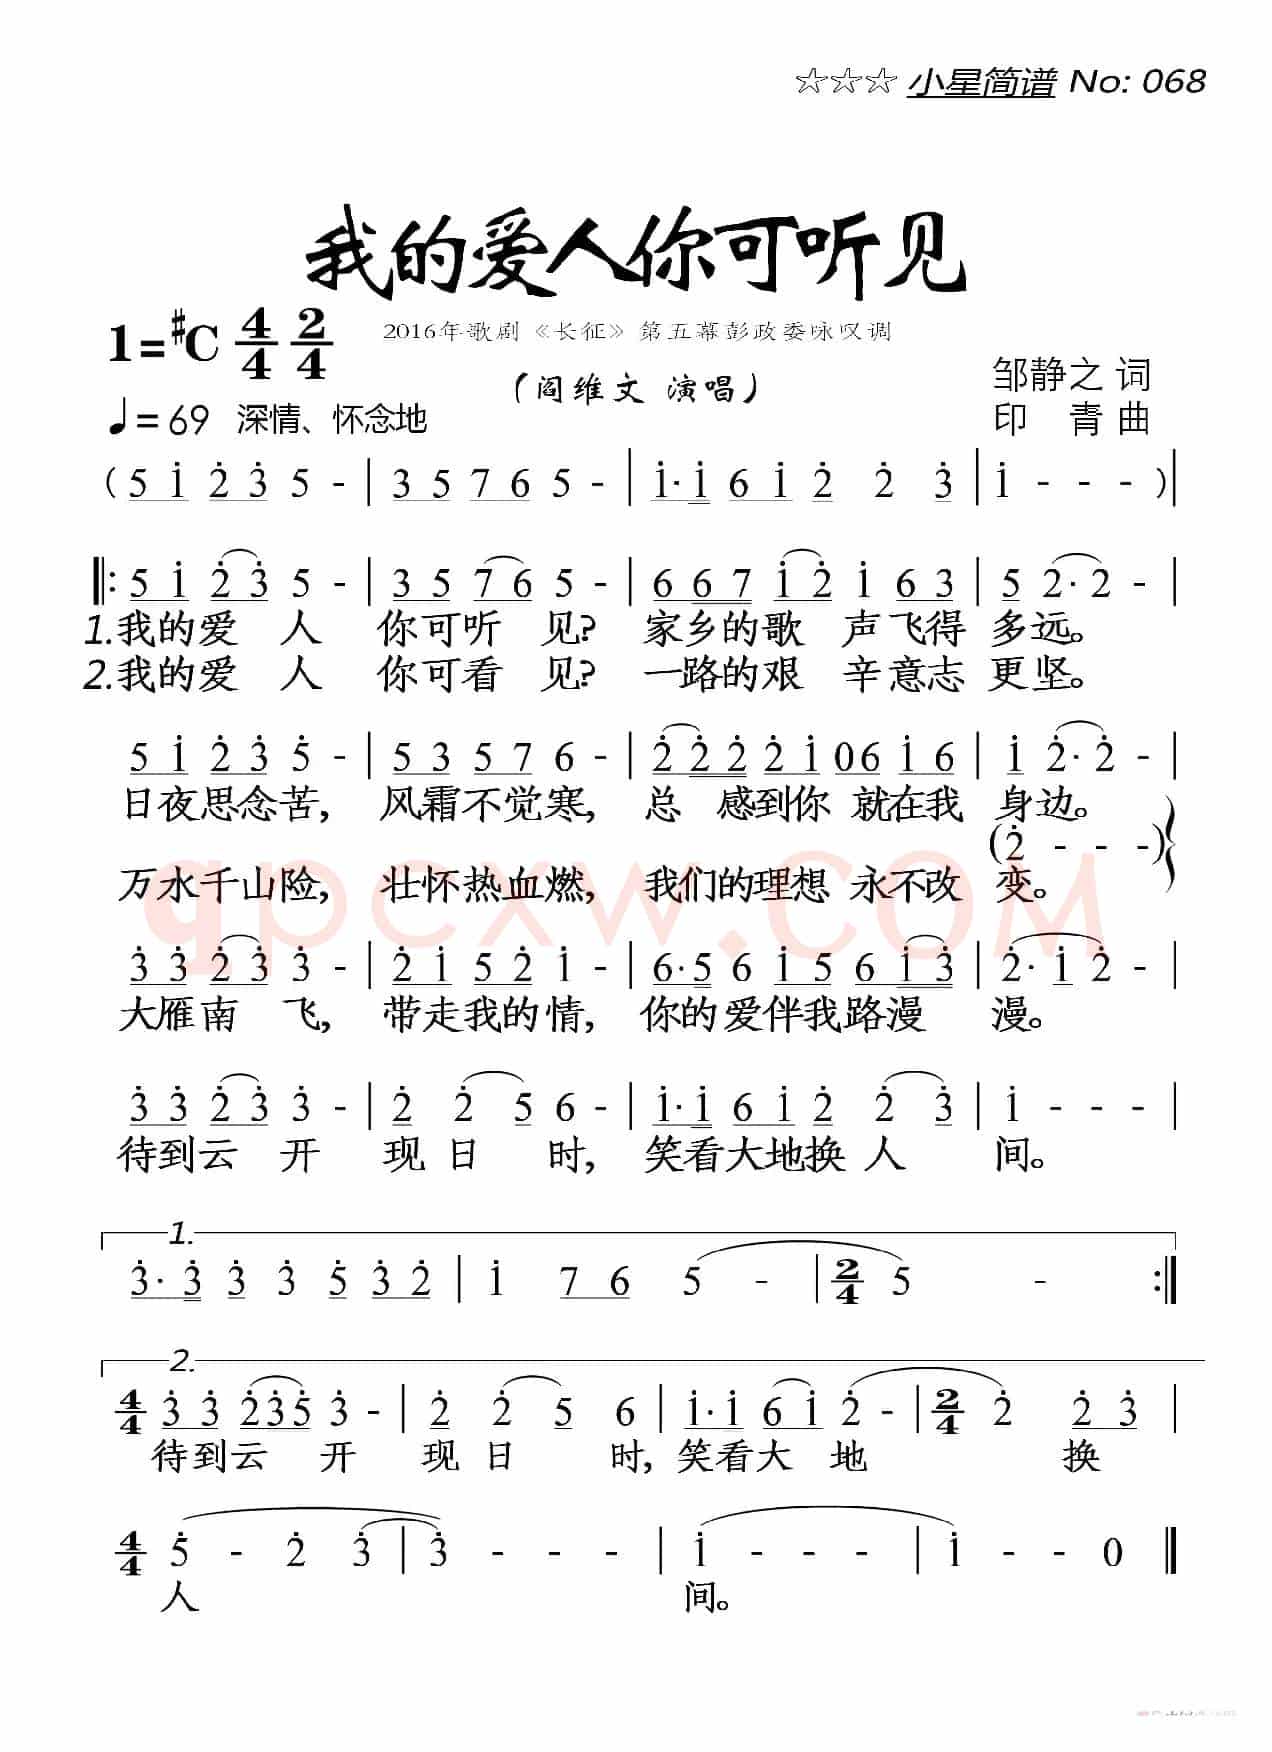 ☆☆☆ 小星简谱 No: 068
我的爱人你可听见
1=#C 4/4 2/4
2016年歌剧《长征》第五幕彭政委咏叹调
(阎维文 演唱)
邹静之 词
♩=69 深情、怀念地
印 青 曲
(5 1̇ 2̇ 3̇ 5 - | 3 5 7 6 5 - | 1̇· 1̇ 6 1̇ 2̇ 2̇ 3̇ | 1̇ - - - )|
‖: 5 1̇ 2̇ 3̇ 5 - | 3 5 7 6 5 - | 6 6 7 1̇ 2̇ 1̇ 6 3 | 5 2· 2 - |
1.我的爱 人 你可听 见? 家乡的歌 声飞得 多远。
2.我的爱 人 你可看 见? 一路的艰 辛意志 更坚。
5 1̇ 2̇ 3̇ 5̇ - | 5 3 5 7 6 - | 2̇ 2̇ 2̇ 2̇ 1̇ 0 6 1̇ 6 | 1̇ 2̇· 2̇ - |
日夜思念苦, 风霜不觉寒, 总 感到你 就在我 身边。
(2̇ - - -)
万水千山险, 壮怀热血燃, 我们的理想 永不改 变。
qpcxw.COM
3̇ 3̇ 2̇ 3̇ 3̇ - | 2̇ 1̇ 5 2̇ 1̇ - | 6· 5 6 1̇ 5 6 1̇ 3̇ | 2̇· 1̇ 2̇ - |
大雁南 飞, 带走我的情, 你的爱伴我路漫 漫。
3̇ 3̇ 2̇ 3̇ 3̇ - | 2̇ 2̇ 5 6 - | 1̇· 1̇ 6 1̇ 2̇ 2̇ 3̇ | 1̇ - - - |
待到云 开 现 日 时, 笑看大地换 人 间。
1.
3̇· 3̇ 3̇ 3̇ 5̇ 3̇ 2̇ | 1̇ 7 6 5 - | 2/4 5 - :‖
2.
4/4 3̇ 3̇ 2̇ 3̇ 5̇ 3̇ - | 2̇ 2̇ 5 6 | 1̇· 1̇ 6 1̇ 2̇ - | 2/4 2̇ 2̇ 3̇ |
待到云 开 现 日 时, 笑看大 地 换
4/4 5̇ - 2̇ 3̇ | 3̇ - - - | 1̇ - - - | 1̇ - - 0 ‖
人 间。